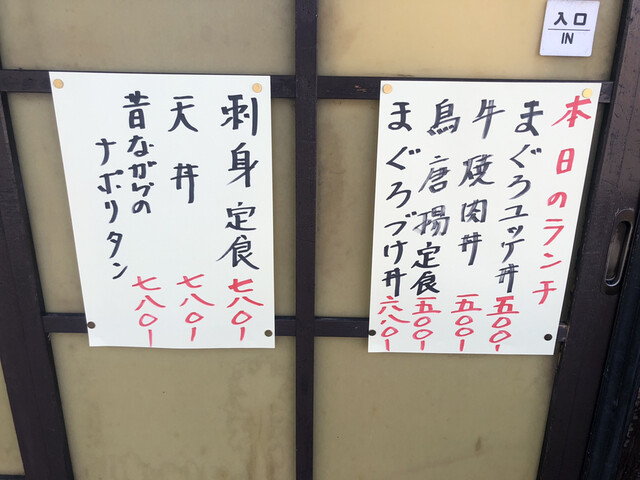 入口
IN
本日のランチ
まぐろユッケ丼 五〇〇-
牛焼肉丼 五〇〇-
鳥唐揚定食 五〇〇-
まぐろづけ丼 六八〇-
刺身定食 七八〇-
天丼 七八〇-
昔ながらの
ナポリタン 七八〇-